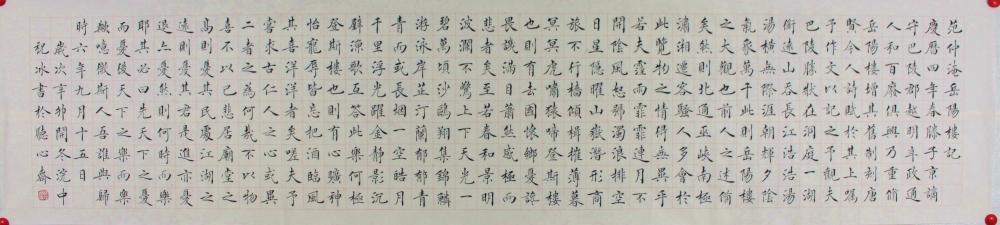 范仲淹岳陽樓記
慶曆四年春滕子京謫
守巴陵郡越明年政通
人和百廢俱興乃重脩
岳陽樓增其舊制刻唐
賢今人詩賦於其上屬
予作文以記之予觀夫
巴陵勝狀在洞庭一湖
銜遠山吞長江浩浩湯
湯橫無際涯朝暉夕陰
氣象萬千此則岳陽樓
之大觀也前人之述備
矣然則北通巫峽南極
瀟湘遷客騷人多會於
此覽物之情得無異乎
若夫霪雨霏霏連月不
開陰風怒號濁浪排空
日星隱曜山嶽潛形商
旅不行檣傾楫摧薄暮
冥冥虎嘯猿啼登斯樓
也則有去國懷鄉憂讒
畏譏滿目蕭然感極而
悲者矣至若春和景明
波瀾不驚上下天光一
碧萬頃沙鷗翔集錦鱗
游泳岸芷汀蘭郁郁青
青而或長煙一空皓月
千里浮光躍金靜影沉
璧漁歌互答此樂何極
登斯樓也則有心曠神
怡寵辱皆忘把酒臨風
其喜洋洋者矣嗟夫予
嘗求古仁人之心或異
二者之為何哉不以物
喜不以己悲居廟堂之
高則憂其民處江湖之
遠則憂其君是進亦憂
退亦憂然則何時而樂
耶其必曰先天下之憂
而憂後天下之樂而樂
歟噫微斯人吾誰與歸
時六年九月十五日
歲次辛卯開冬浣中
祝冰書於聽心齋